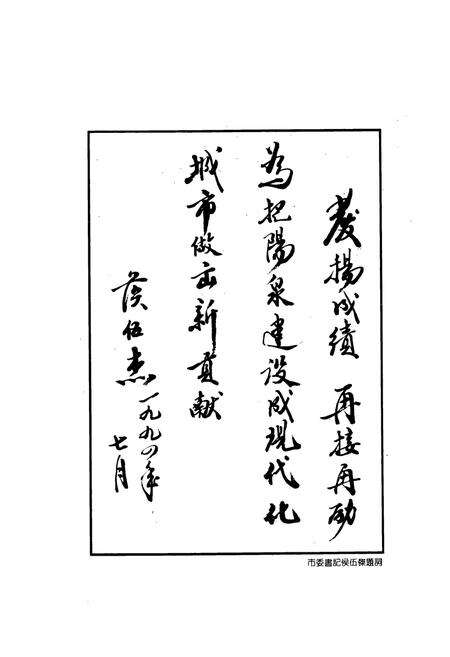 發揚成績 再接再励
為把陽泉建设成現代化
城市做出新貢献
侯伍杰 一九九四年
七月
市委書記侯伍傑題詞